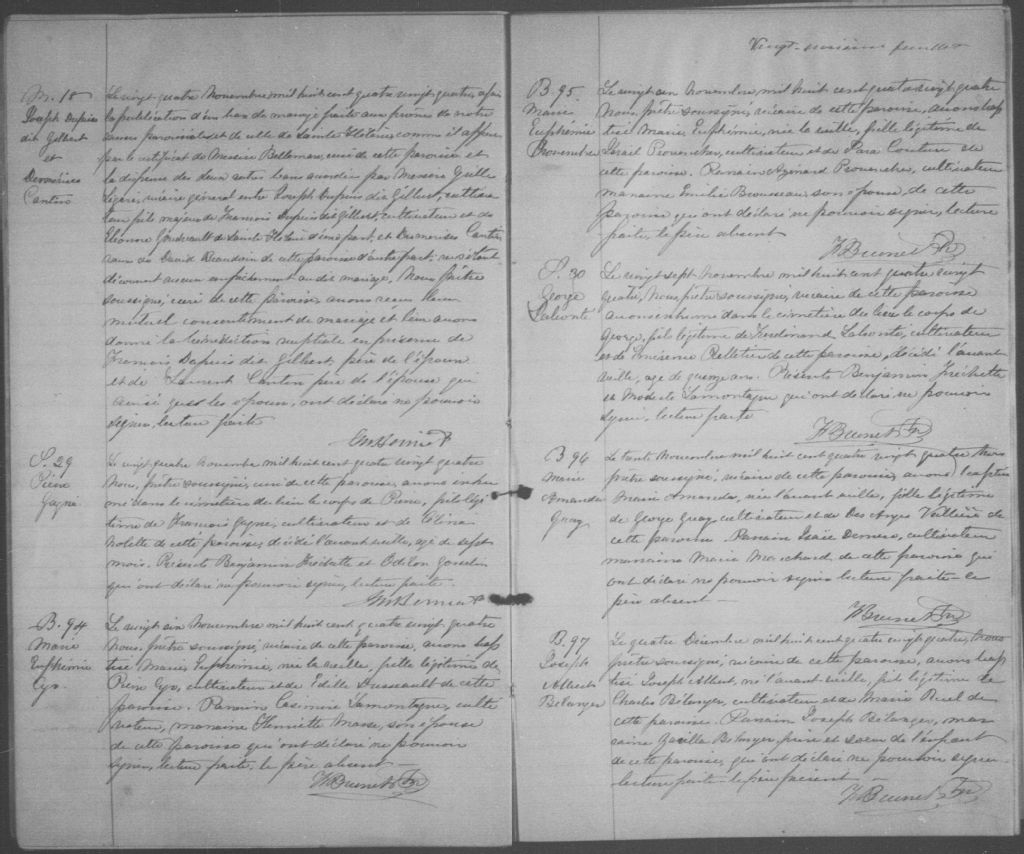 M. 18
Joseph Dupuis
dit Gilbert
et
Demerise
Cantin
Le vingt quatre Novembre mil huit cent quatre vingt quatre, après
la publication d'un ban de mariage faite aux prônes de notre
messe paroissiale et de celle de Sainte Flotérie comme il appert
par le certificat de Messire Bellemare, curé de cette paroisse et
la dispense des deux autres bans accordée par Messire
Légaré, vicaire général entre Joseph Dupuis dit Gilbert, cultiva
teur fils majeur de Francois Dupuis dit Gilbert, cultivateur et de
Eléonore Goudreault de Sainte d'une part, et Demerises Cantin
veuve de David Beaudoin de cette paroisse d'autre part; ne s'étant
découvert aucun empêchement au dit mariage, Nous, Prêtre
soussigné, curé de cette paroisse, avons reçu leur
mutuel consentement de mariage et leur avons
donné la bénédiction nuptiale en présence de
Francois Dupuis dit Gilbert, père de l'époux
et de Laurent Cantin père de l'épouse qui
ainsi que les époux, ont déclaré ne pouvoir
signer, lecture faite
S. 29
Pierre
Gagné
Le vingt quatre Novembre mil huit cent quatre vingt quatre
Nous, prêtre soussigné, curé de cette paroisse, avons inhu
mé dans le cimétière du lieu le corps de Pierre, fils légi
time de Francois Gagné, cultivateur et de Elina
Nolette de cette paroisse, décédé l'avant veille, agé de sept
mois. Présents Benjamin Fréchette et Odilon Gosselin
qui ont déclaré ne pouvoir signer, lecture faite.
B. 94
Marie
Euphémie
Cyr.
Le vingt six Novembre mil huit cent quatre vingt quatre
Nous, prêtre soussigné, vicaire de cette paroisse, avons bap
tisé Marie Euphémie, née la veille, fille légitime de
Pierre Cyr, cultivateur et de Edille Dussault de cette
paroisse. Parrain Casimire Lamontagne, culti
vateur, marraine Henriette Masse, son épouse
de cette paroisse qui ont déclaré ne pouvoir
signer, lecture faite, le père absent
F Brunet Ptre
Vingt-troisième feuillet
B. 95
Marie
Euphémie
Provencher
Le vingt six Novembre, mil huit cent quatre vingt quatre
Nous, prêtre soussigné, vicaire de cette paroisse, avons bap
tisé Marie Euphémie, née la veille, fille légitime de
Israël Provencher, cultivateur et de Couture de
cette paroisse. Parrain Provencher, cultivateur
marraine Emilie Brousseau son épouse, de cette
paroisse qui ont déclaré ne pouvoir signer, lecture
faite, le père absent
F Brunet Ptre
S. 30
George
Laliberté
Le vingt sept Novembre mil huit cent quatre vingt
quatre, Nous, prêtre soussigné, vicaire de cette paroisse
avons enhumé dans le cimetière du lieu le corps de
George, fils légitime de Ferdinand Laliberté, cultivateur
et de Pelletier de cette paroisse, décédé l'avant
veille, agé de quinze ans. Présents Benjamin Fréchette
et Modeste Lamontagne qui ont déclaré ne pouvoir
signer, lecture faite
F Brunet Ptre
B 96
Marie
Amanda
Guay
Le trente Novembre mil huit cent quatre vingt quatre Nous
prêtre soussigné, vicaire de cette paroisse, avons baptisé
Marie Amanda, née l'avant veille, fille légitime
de George Guay, cultivateur et de Des Anges Vallière de
cette paroisse. Parrain Isaïe Demers, cultivateur
marraine Marie Marchand de cette paroisse qui
ont déclaré ne pouvoir signer lecture faite - le
père absent
F Brunet Ptre
B. 97
Joseph
Albert
Bélanger
Le quatre Décembre mil huit cent quatre vingt quatre, Nous
prêtre soussigné, vicaire de cette paroisse, avons bap
tisé Joseph Albert, né l'avant veille, fils légitime de
Charles Bélanger, cultivateur et de Marie Ruel de
cette paroisse. Parrain Joseph Bélanger, mar
raine Bélanger, frère et soeur de l'enfant
de cette paroisse, qui ont déclaré ne pouvoir signer
lecture faite - le père présent
F Brunet Ptre